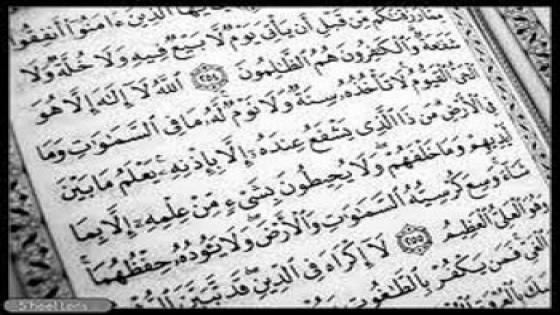 ٱلَّذِينَ ءَامَنُوٓا۟ أَنفِقُوا۟
رَزَقْنَٰكُم مِّن قَبْلِ أَن يَأْتِىَ يَوْمٌ لَّا بَيْعٌ فِيهِ وَلَا خُلَّةٌ وَلَا
شَفَٰعَةٌ وَٱلْكَٰفِرُونَ هُمُ ٱلظَّٰلِمُونَ ٢٥٤ ٱللَّهُ لَآ إِلَٰهَ إِلَّا هُوَ
ٱلْحَىُّ ٱلْقَيُّومُ لَا تَأْخُذُهُۥ سِنَةٌ وَلَا نَوْمٌ لَّهُۥ مَا فِى ٱلسَّمَٰوَٰتِ وَمَا
فِى ٱلْأَرْضِ مَن ذَا ٱلَّذِى يَشْفَعُ عِندَهُۥٓ إِلَّا بِإِذْنِهِۦ يَعْلَمُ مَا بَيْنَ
أَيْدِيهِمْ وَمَا خَلْفَهُمْ وَلَا يُحِيطُونَ بِشَىْءٍ مِّنْ عِلْمِهِۦٓ إِلَّا بِمَا
شَآءَ وَسِعَ كُرْسِيُّهُ ٱلسَّمَٰوَٰتِ وَٱلْأَرْضَ وَلَا يَـُٔودُهُۥ حِفْظُهُمَا
وَهُوَ ٱلْعَلِىُّ ٱلْعَظِيمُ ٢٥٥ لَآ إِكْرَاهَ فِى ٱلدِّينِ قَد تَّبَيَّنَ
ٱلْغَىِّ فَمَن يَكْفُرْ بِٱلطَّٰغُوتِ